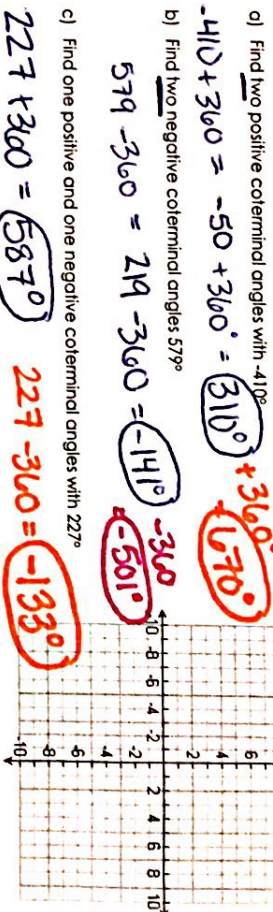 a) Find two positive coterminal angles with -410°
-410 + 360 = -50 + 360° = 310° + 360°
670°
b) Find two negative coterminal angles 579°
579 - 360 = 219 - 360 = -141° -360
-501°
c) Find one positive and one negative coterminal angles with 227°
227 + 360 = 587° 227 - 360 = -133°
6
4
2
-10 -8 -6 -4 -2 2 4 6 8 10
-2
-4
-6
-8
-10